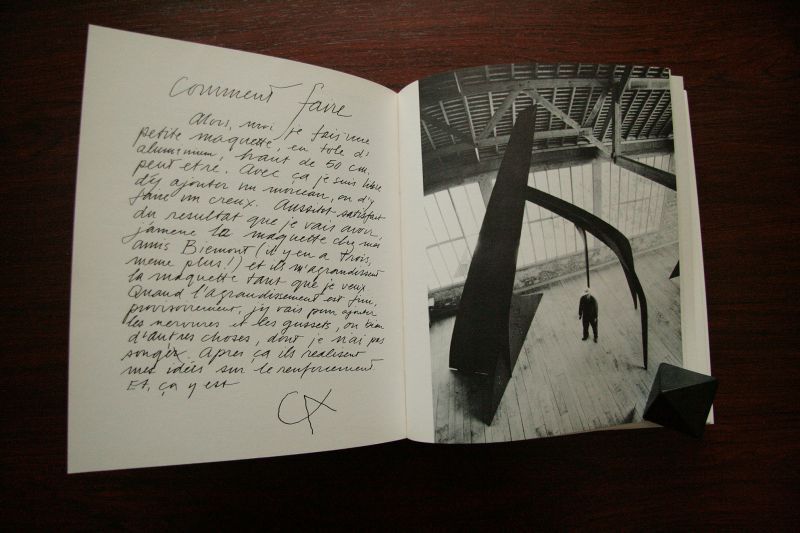 Comment faire
Alors, moi je fais une
petite maquette, en tole d'
aluminium, haut de 50 cm.
peut etre. Avec ça je suis libre
d'y ajouter un morceau, ou d'y
faire un creux. Aussitot satisfait
du resultat que je vais avoir,
j'amene la maquette chez mes
amis Biemont (il y en a trois,
meme plus!) et ils m'agrandissent
la maquette tant que je veux.
Quand l'agrandissement est fini,
provisoirement, j'y vais pour ajouter
les nervures et les gussets, ou bien
d'autres choses, dont je n'ai pas
songer. Apres ça ils realisent
mes idées sur le renforcement
Et, ça y est
CA